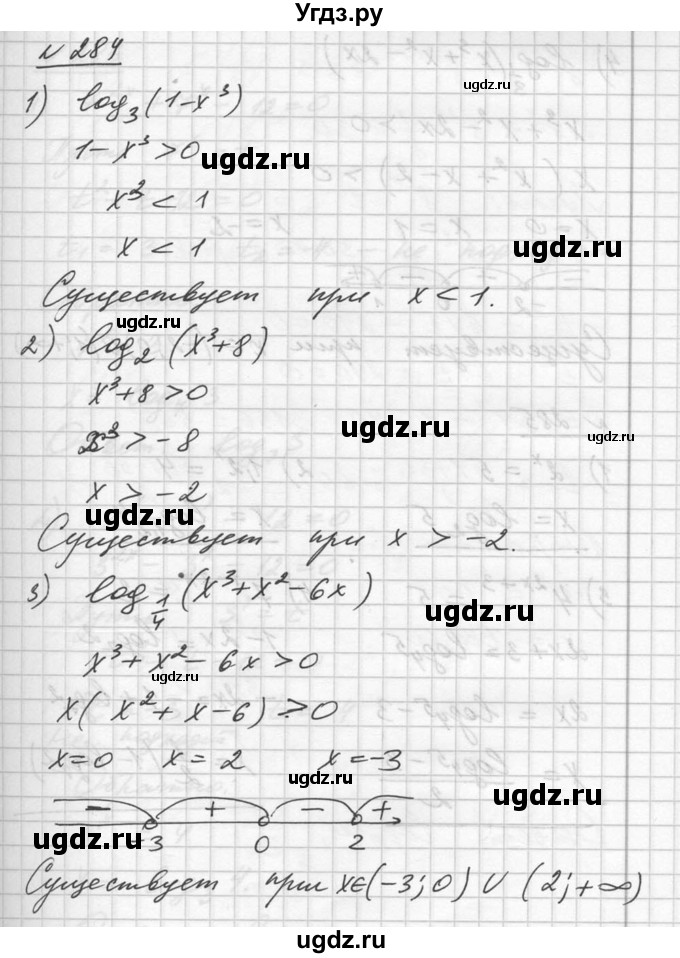 Угдз.ру
N 284
1) log₃(1-x³)
1-x³>0
x³<1
x<1
Существует при x<1.
2) log₂(x³+8)
x³+8>0
x³>-8
x>-2
Существует при x>-2.
3) log_{1/4}(x³+x²-6x)
x³+x²-6x>0
x(x²+x-6)>0
x=0 x=2 x=-3
- + - +
-3 0 2
Существует при x∈(-3;0)∪(2;+∞)
ugdz.ru
ugdz.ru
ugdz.ru
ugdz.ru
ugdz.ru
ugdz.ru
ugdz.ru
ugdz.ru
ugdz.ru
ugdz.ru
ugdz.ru
ugdz.ru
ugdz.ru